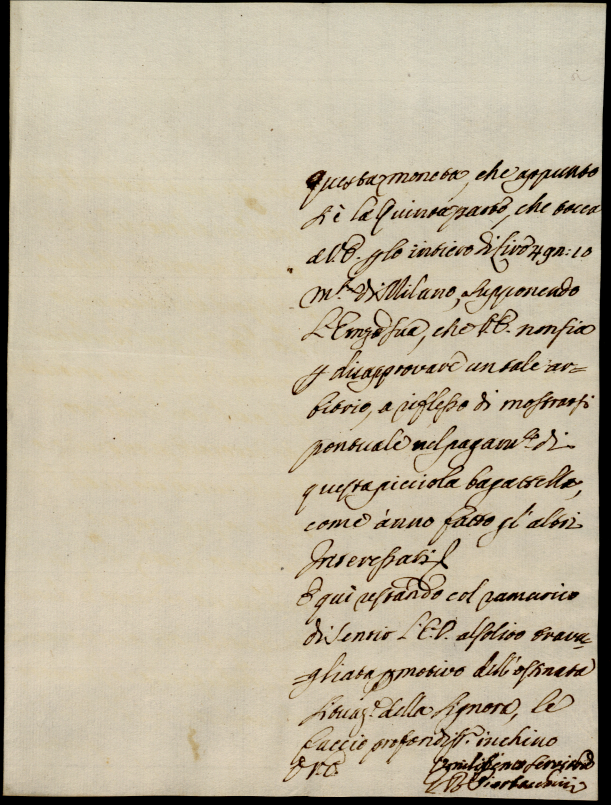 questa moneta, che appunto
si è la Quinta parte, che tocca
a V.E. p lo intiero di Lire 49n: 10
m.ta di Milano, supponendo
L'Emza sua, che V.E. non sia
p disapprovare un tale ar=
bitrio, a riflesso di mostrarsi
pontuale nel pagam.to di
questa picciola bagattella,
come anno fatto gl'altri
Interessati
E qui restando col ramarico
di sentir L'E.V. al solito trava=
=gliata p motivo dell'ostinata
situaz.e della Signora, le
faccio profondiss.o inchino
Umilissimo servitore